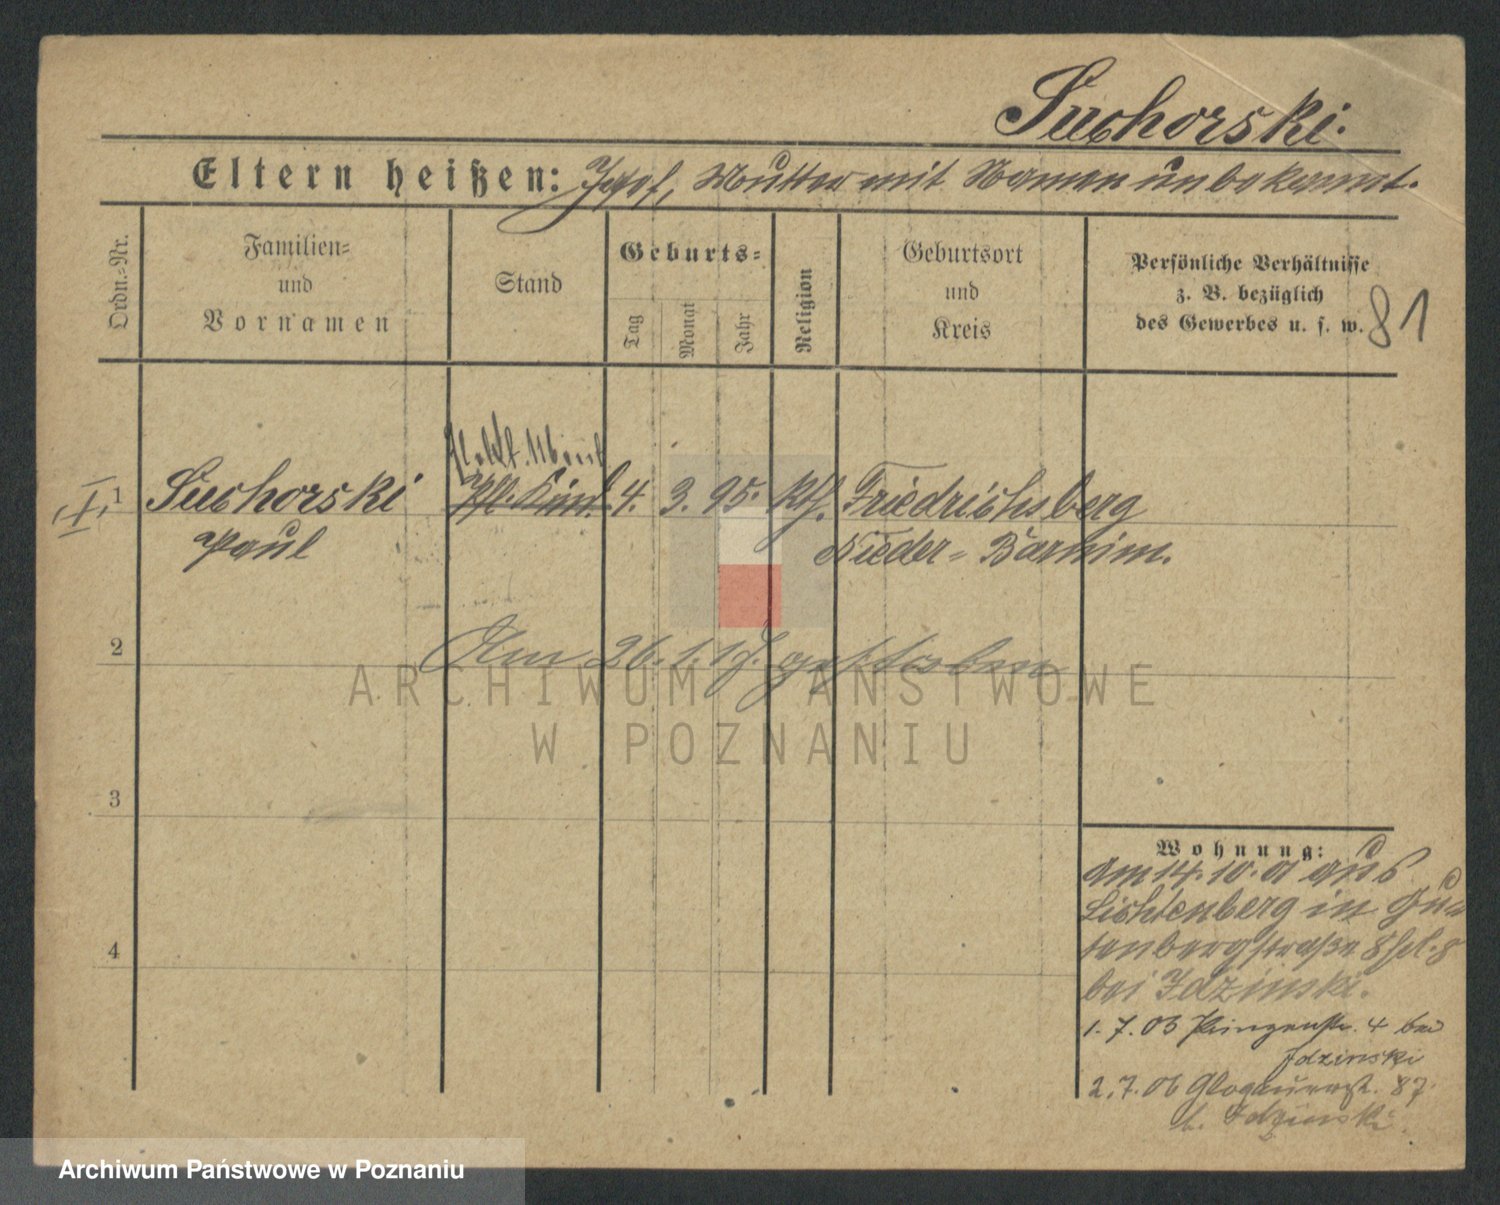 Suchorski.
Eltern heißen: Josef, Mutter mit Namen unbekannt.
Ordn.=Nr.
Familien=
und
Vornamen
Stand
Geburts=
Tag
Monat
Jahr
Religion
Geburtsort
und
Kreis
Persönliche Verhältnisse
z. B. bezüglich
des Gewerbes u. s. w.
81
I 1 Suchorski Pfl. Kind. 4. 3. 95. Kth. Friedrichsberg
Paul Nieder=Barnim.
2 Am 26.1.17. gestorben
3
4
Wohnung:
Am 14.10.01 aus
Lichtenberg in Gu=
tenbergstraße 8
bei Idzinski.
1.7.03 Prinzenstr. 4 bei
Idzinski
2.7.06 Glogauerstr. 87.
b. Idzinski.
ARCHIWUM PAŃSTWOWE
W POZNANIU
Archiwum Państwowe w Poznaniu